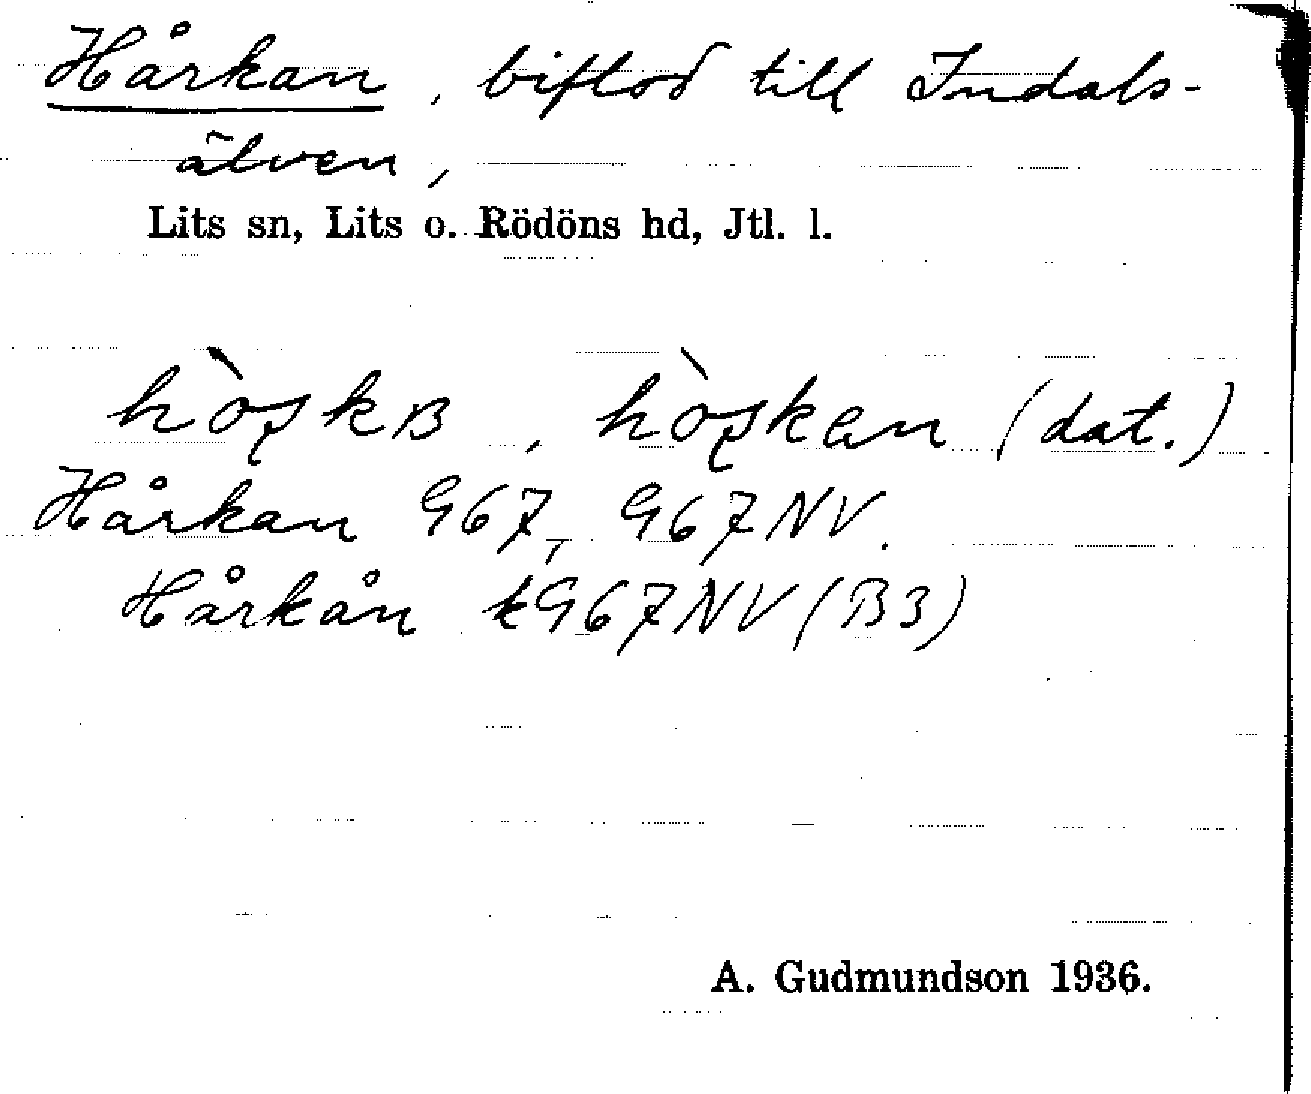 Hårkan, biflod till Indals-
älven,
Lits sn, Lits o. Rödöns hd, Jtl. l.
(dat.)
Hårkan 967, 967NV.
Hårkån k967NV(B3)
A. Gudmundson 1936.